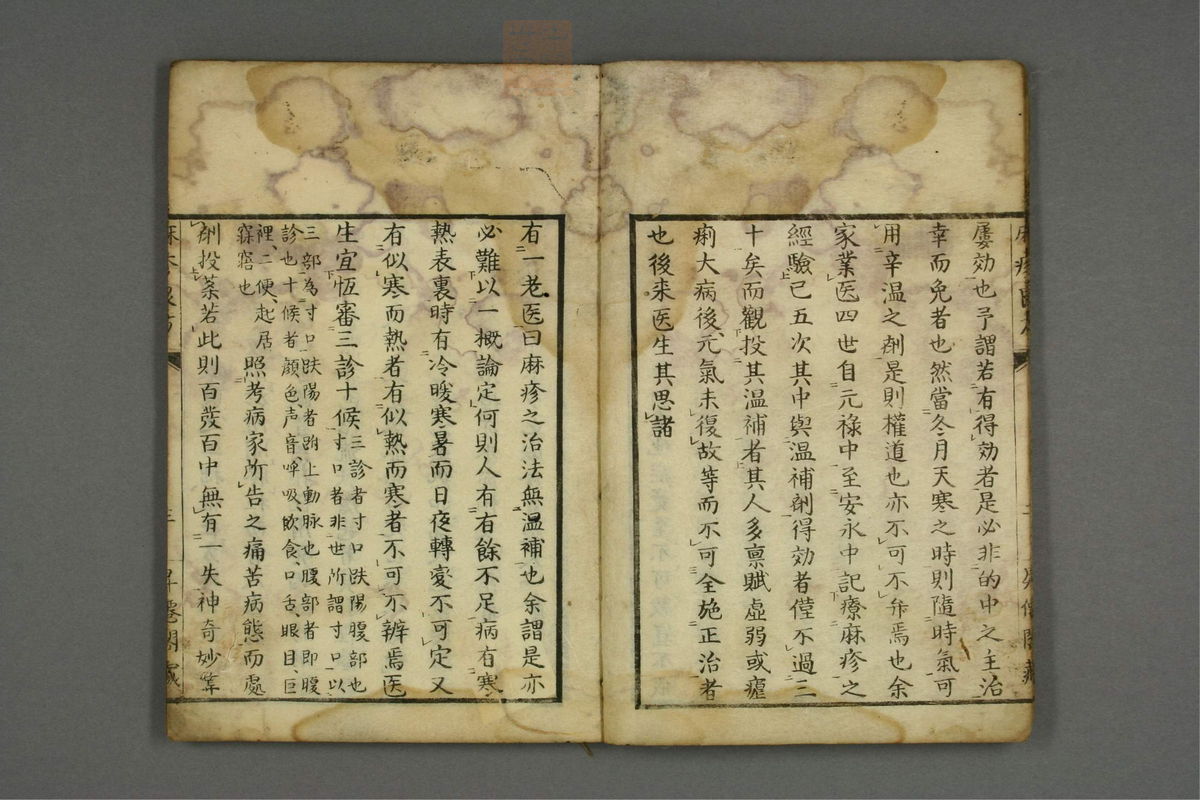 屢効也予謂若有得効者是必非的中之主治
幸而免者也然當冬月天寒之時則隨時氣可
用辛温之剤是則權道也亦不可不弁焉也余
家業医四世自元祿中至安永中記療麻疹之
經驗已五次其中與温補剤得効者僅不過二
十矣而觀投其温補者其人多禀賦虚弱或瘧
痢大病後元氣未復故等而不可全施正治者
也後来医生其思諸
有一老医曰麻疹之治法無温補也余謂是亦
必難以一概論定何則人有有餘不足病有寒
熱表裏時有冷暖寒暑而日夜轉變不可定又
有似寒而熱者有似熱而寒者不可不辨焉医
生宜恆審三診十候三診者寸口趺陽腹部也
寸口者非世所謂寸口以
三部為寸口趺陽者跗上動脉也腹部者即腹
診也十候者顔色声音呼吸飲食口舌眼目巨
裡二便起居
寐寤也
照考病家所告之痛苦病態而處
剤投薬若此則百發百中無有一失神奇妙算